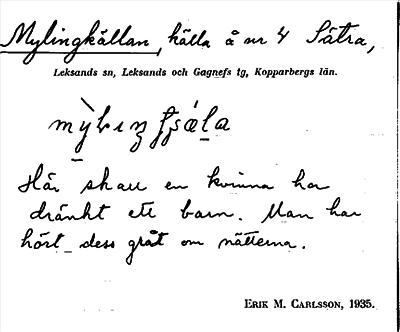 Mylingkällan, källa å nr 4 Sätra,
Leksands sn, Leksands och Gagnefs tg, Kopparbergs län.
Här skall en kvinna ha
dränkt ett barn. Man har
hört dess gråt om nätterna.
Erik M. Carlsson, 1935.